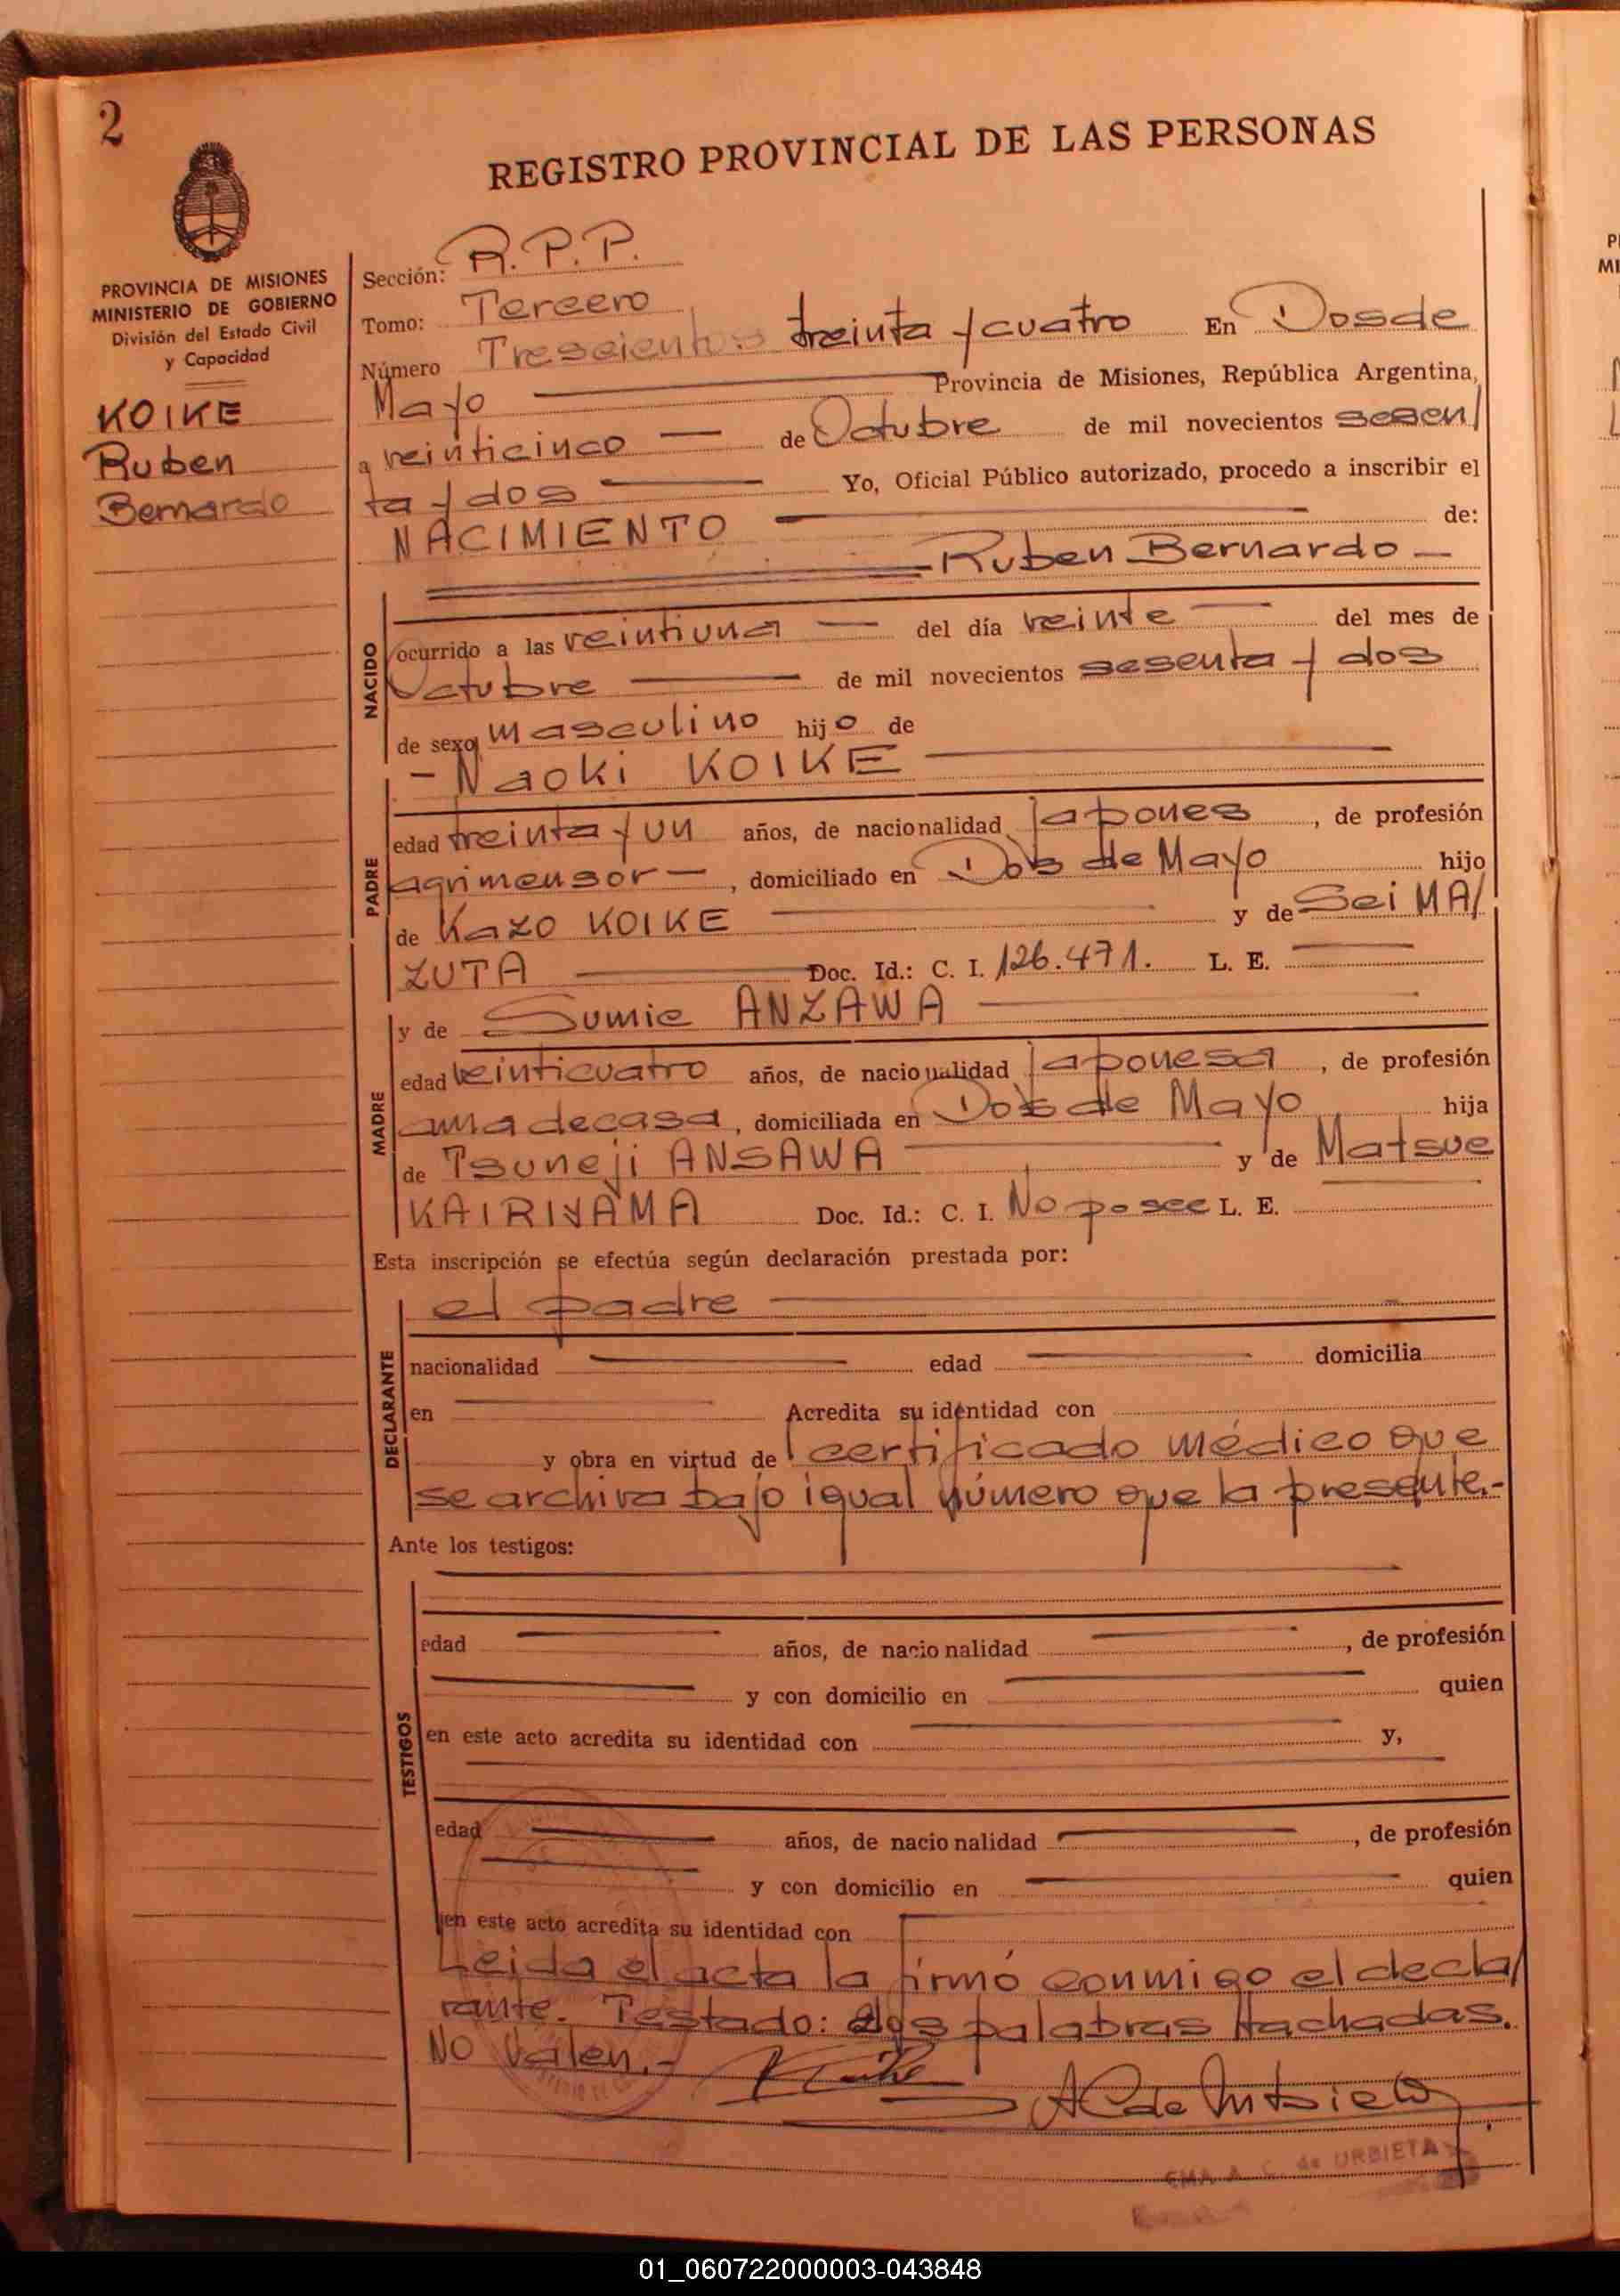 2
REGISTRO PROVINCIAL DE LAS PERSONAS
PROVINCIA DE MISIONES
MINISTERIO DE GOBIERNO
División del Estado Civil
y Capacidad
KOIKE
Ruben
Bernardo
Sección: R.P.P.
Tomo: Tercero
Número Trescientos treinta y cuatro En Dos de
Mayo Provincia de Misiones, República Argentina,
a veinticinco de Octubre de mil novecientos sesen/
ta y dos Yo, Oficial Público autorizado, procedo a inscribir el
NACIMIENTO de:
Ruben Bernardo
NACIDO
ocurrido a las veintiuna del día veinte del mes de
Octubre de mil novecientos sesenta y dos
de sexo masculino hijo de
- Naoki KOIKE
PADRE
edad treinta y un años, de nacionalidad japones, de profesión
agrimensor -, domiciliado en Dos de Mayo hijo
de Kazo KOIKE y de Sei MA/
ZUTA Doc. Id.: C. I. 126.471. L. E.
y de Sumie ANZAWA
MADRE
edad veinticuatro años, de nacionalidad japonesa, de profesión
ama de casa, domiciliada en Dos de Mayo hija
de Tsuneji ANSAWA y de Matsue
KAIRIYAMA Doc. Id.: C. I. No posee L. E.
Esta inscripción se efectúa según declaración prestada por:
el padre
DECLARANTE
nacionalidad edad domicilia
en Acredita su identidad con
y obra en virtud de certificado médico que
se archiva bajo igual número que la presente.-
Ante los testigos:
TESTIGOS
edad años, de nacionalidad , de profesión
y con domicilio en quien
en este acto acredita su identidad con y,
edad años, de nacionalidad , de profesión
y con domicilio en quien
en este acto acredita su identidad con
Leida el acta la firmó conmigo el decla/
rante. Testado: dos palabras tachadas.
No valen.-
A C de Urbieta
EMA A. C. de URBIETA
01_060722000003-043848